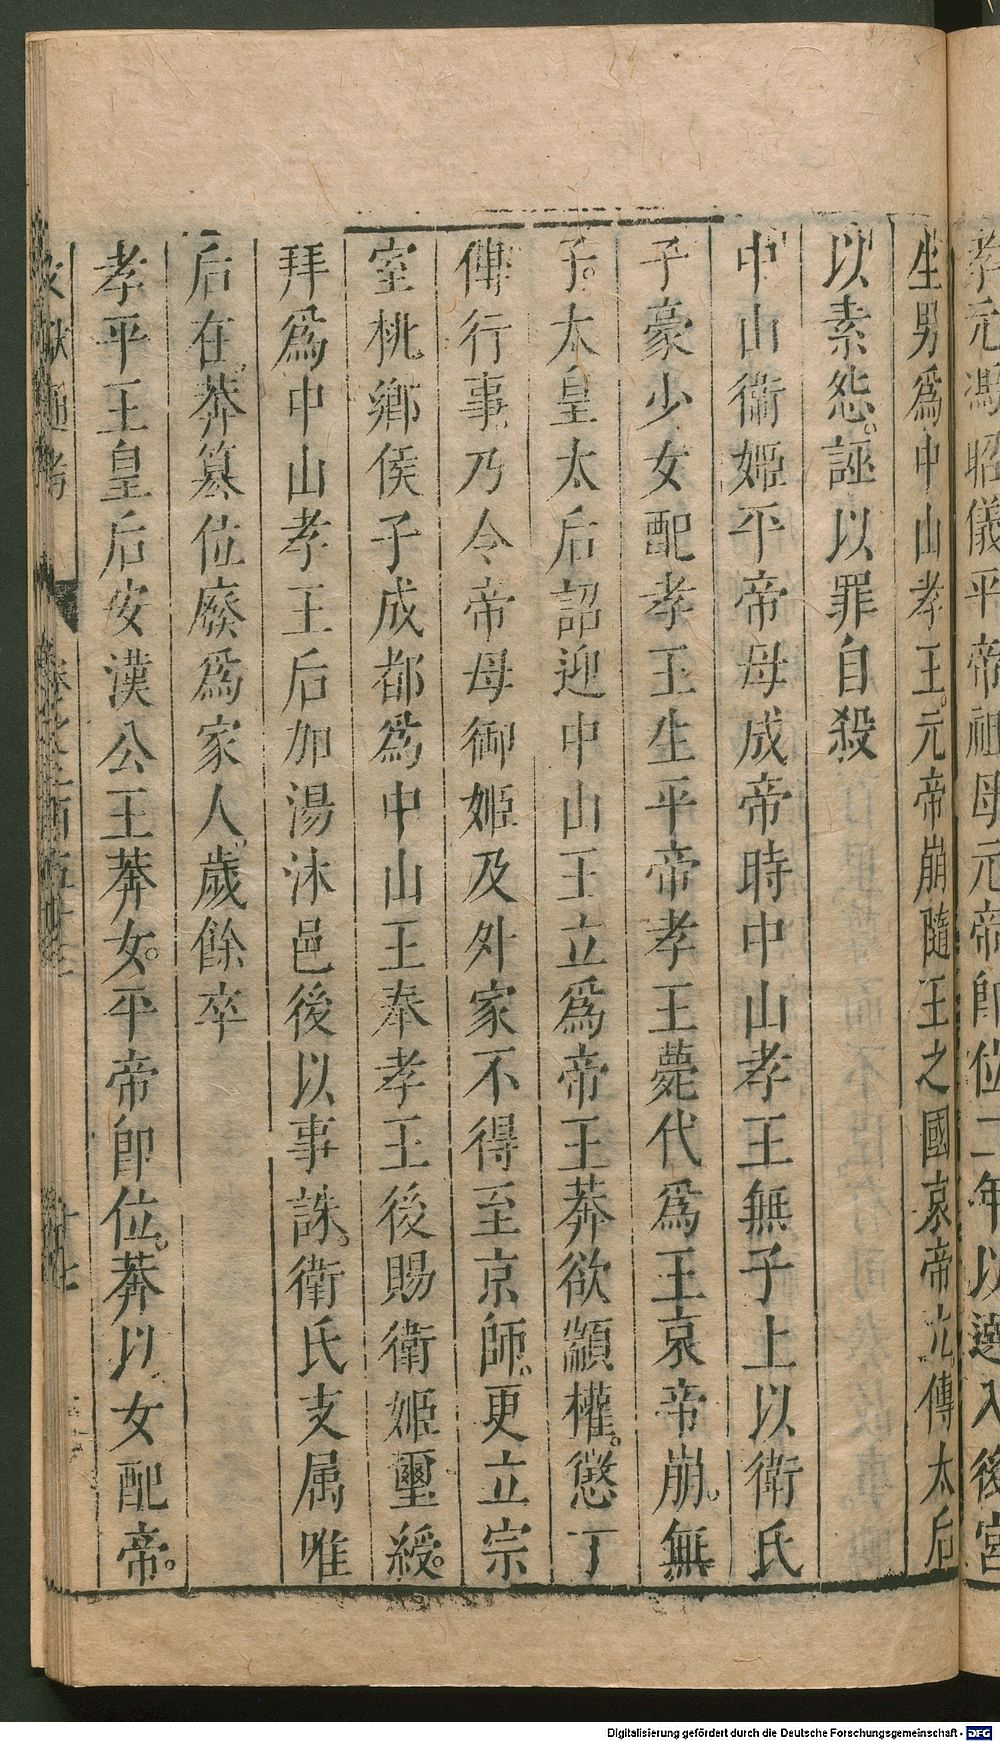 孝元馮昭儀平帝祖母元帝即位二年以選入後宮
生男爲中山孝王。元帝崩隨王之國哀帝立傅太后
以素怨。誣以罪自殺
中山衞姬平帝母成帝時中山孝王無子上以衛氏
子豪少女配孝王生平帝孝王薨代爲王哀帝崩。無
子。太皇太后詔迎中山王立爲帝王莽欲顓權。懲丁
傅行事。乃令帝母御姬及外家不得至京師。更立宗
室桃鄉侯子成都爲中山王奉孝王後賜衛姬璽綬。
拜爲中山孝王后加湯沐邑後以事誅。衛氏支属唯
后在。莽篡位廢爲家人。歲餘卒
孝平王皇后安漢公王莽女。平帝即位。莽以女配帝。
文獻通考
Digitalisierung gefördert durch die Deutsche Forschungsgemeinschaft - DFG